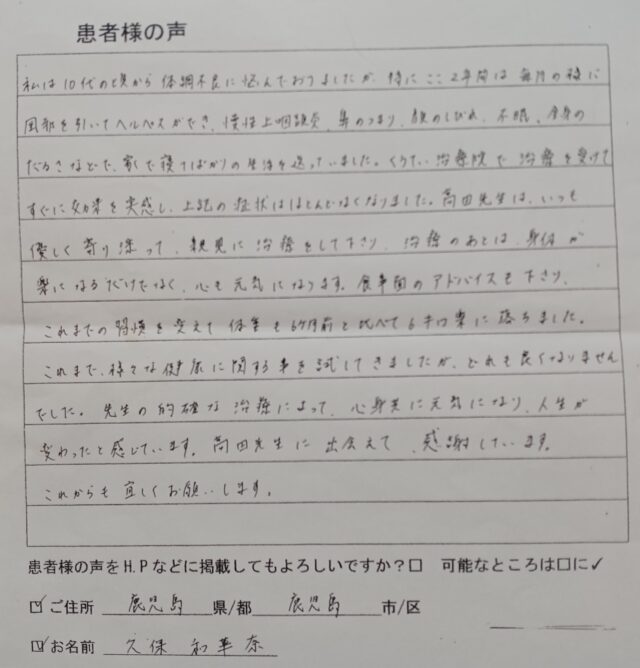 患者様の声
私は10代の頃から体調不良に悩んでおりましたが、特にここ2年間は毎月の様に
風邪を引いてヘルペスができ、慢性上咽頭炎、鼻のつまり、顔のしびれ、不眠、全身の
だるさなどで、家で寝てばかりの生活を送っていました。くらてい治療院で治療を受けて
すぐに効果を実感し、上記の症状はほとんどなくなりました。高田先生は、いつも
優しく寄り添って、親身に治療をして下さり、治療のあとは、身体が
楽になるだけでなく、心も元気になります。食事面のアドバイスも下さり、
これまでの習慣を変えて体重も6ヶ月前と比べて6キロ楽に落ちました。
これまで、様々な健康に関する事を試してきましたが、どれも良くなりません
でした。先生の的確な治療によって、心身共に元気になり、人生が
変わったと感じています。高田先生に出会えて、感謝しています。
これからも宜しくお願いします。
患者様の声をH.Pなどに掲載してもよろしいですか？□ 可能なところは□に✓
☑ご住所 鹿児島 県/都 鹿児島 市/区
☑お名前 久保